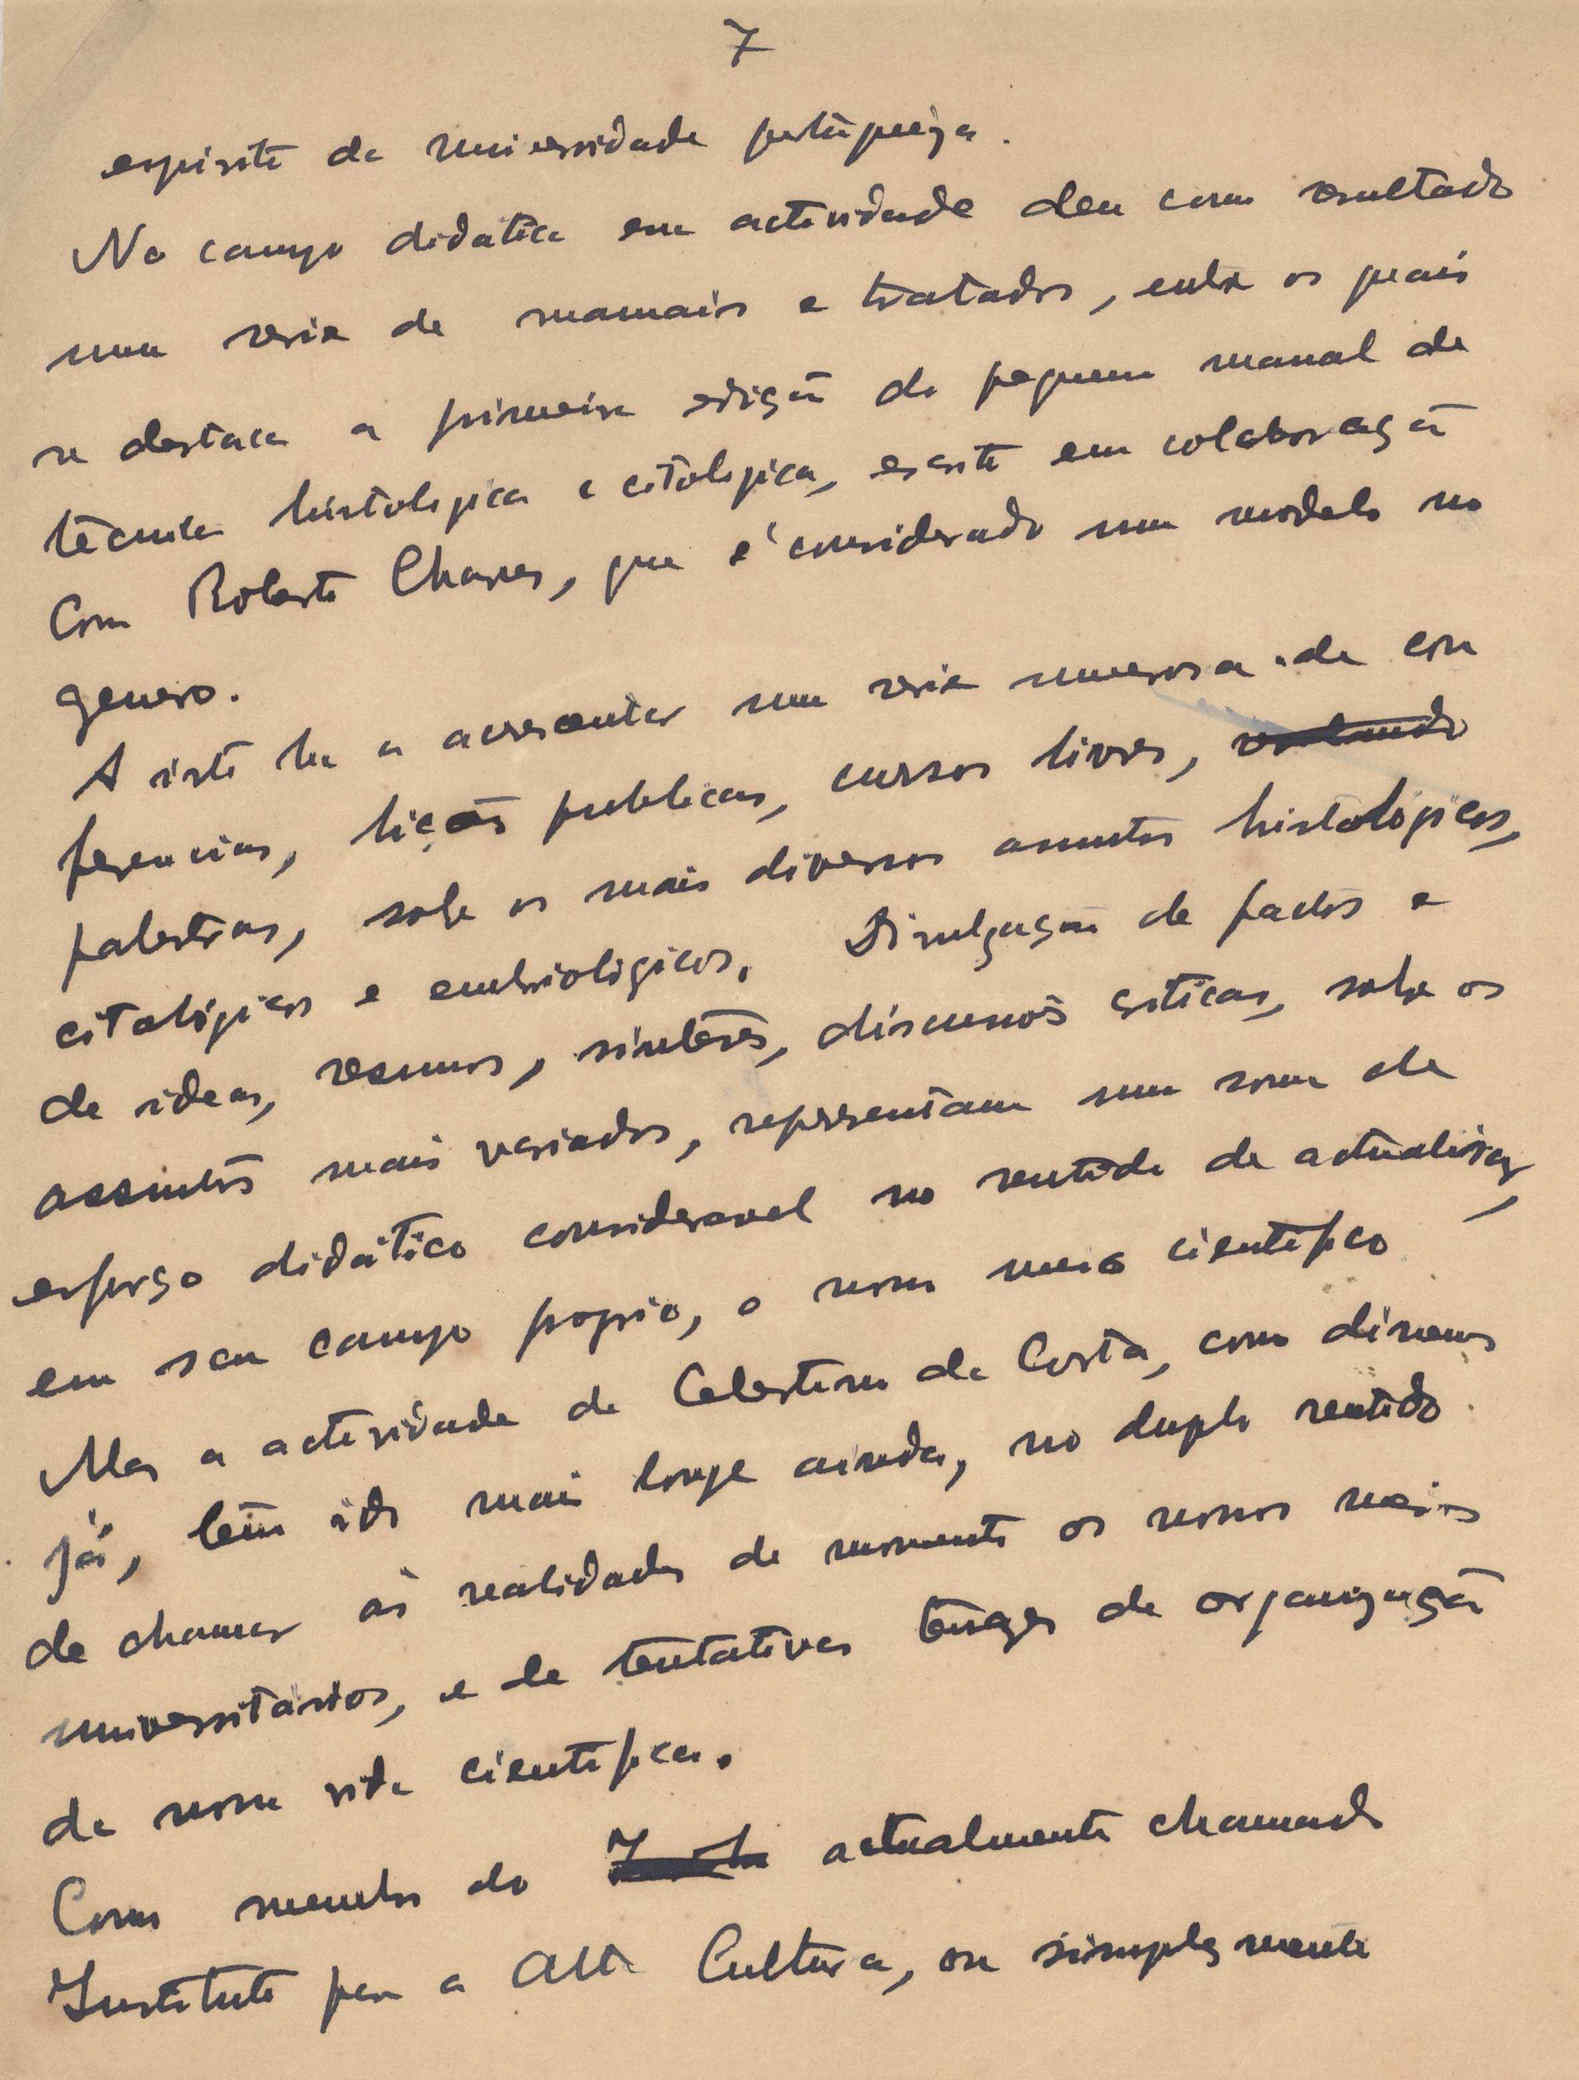 7
espirito da universidade portugueza.
No campo didatico sua actividade deu como resultado
uma serie de manuais e tratados, entre os quais
se destaca a primeira edição do pequeno manual de
técnica histologica e citologica, escrito em colaboração
Com Roberto Chaves, que é considerado um modelo no
genero.
A isto ha a acrescentar uma serie numerosa de con
ferencias, lições publicas, cursos livres,
palestras, sobre os mais diversos assuntos histológicos,
citológicos e embriológicos. Divulgação de factos e
de ideas, resumos, sinteses, discussões criticas, sobre os
assuntos mais variados, representam uma soma de
esforço didático consideravel no sentido de actualisar,
em seu campo proprio, o nosso meio cientifico
Mas a actividade de Celestino da Costa, como dissemos
já, tem ido mais longe ainda, no duplo sentido
de chamar às realidades do momento os nossos meios
universitarios, e de tentativas tenazes de organização
da nossa vida cientifica.
Como membro do actualmente chamado
Instituto para a Alta Cultura, ou simplesmente